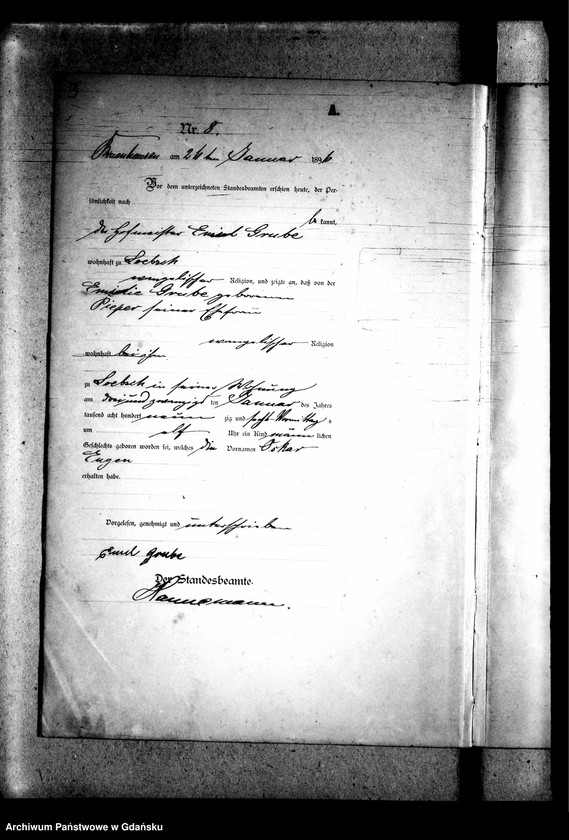 A.
Nr. 8.
am 26 ten Januar 1896
Vor dem unterzeichneten Standesbeamten erschien heute, der Per-
sönlichkeit nach
be kannt,
der Hofmeister Emil Grube
wohnhaft zu Loebsch
evangelischer Religion, und zeigte an, daß von der
Emilie Grube geborenen
Pieper seiner Ehefrau
evangelischer Religion
wohnhaft bei ihm
zu Loebsch in seiner Wohnung
am dreiundzwanzigs ten Januar des Jahres
tausend acht hundert neun zig und sechs Vormittag s
um elf Uhr ein Kind männ lichen
Geschlechts geboren worden sei, welches die Vornamen Oskar
Eugen
erhalten habe.
Vorgelesen, genehmigt und unterschrieben
Emil Grube
Der Standesbeamte.
Hannemann.
Archiwum Państwowe w Gdańsku